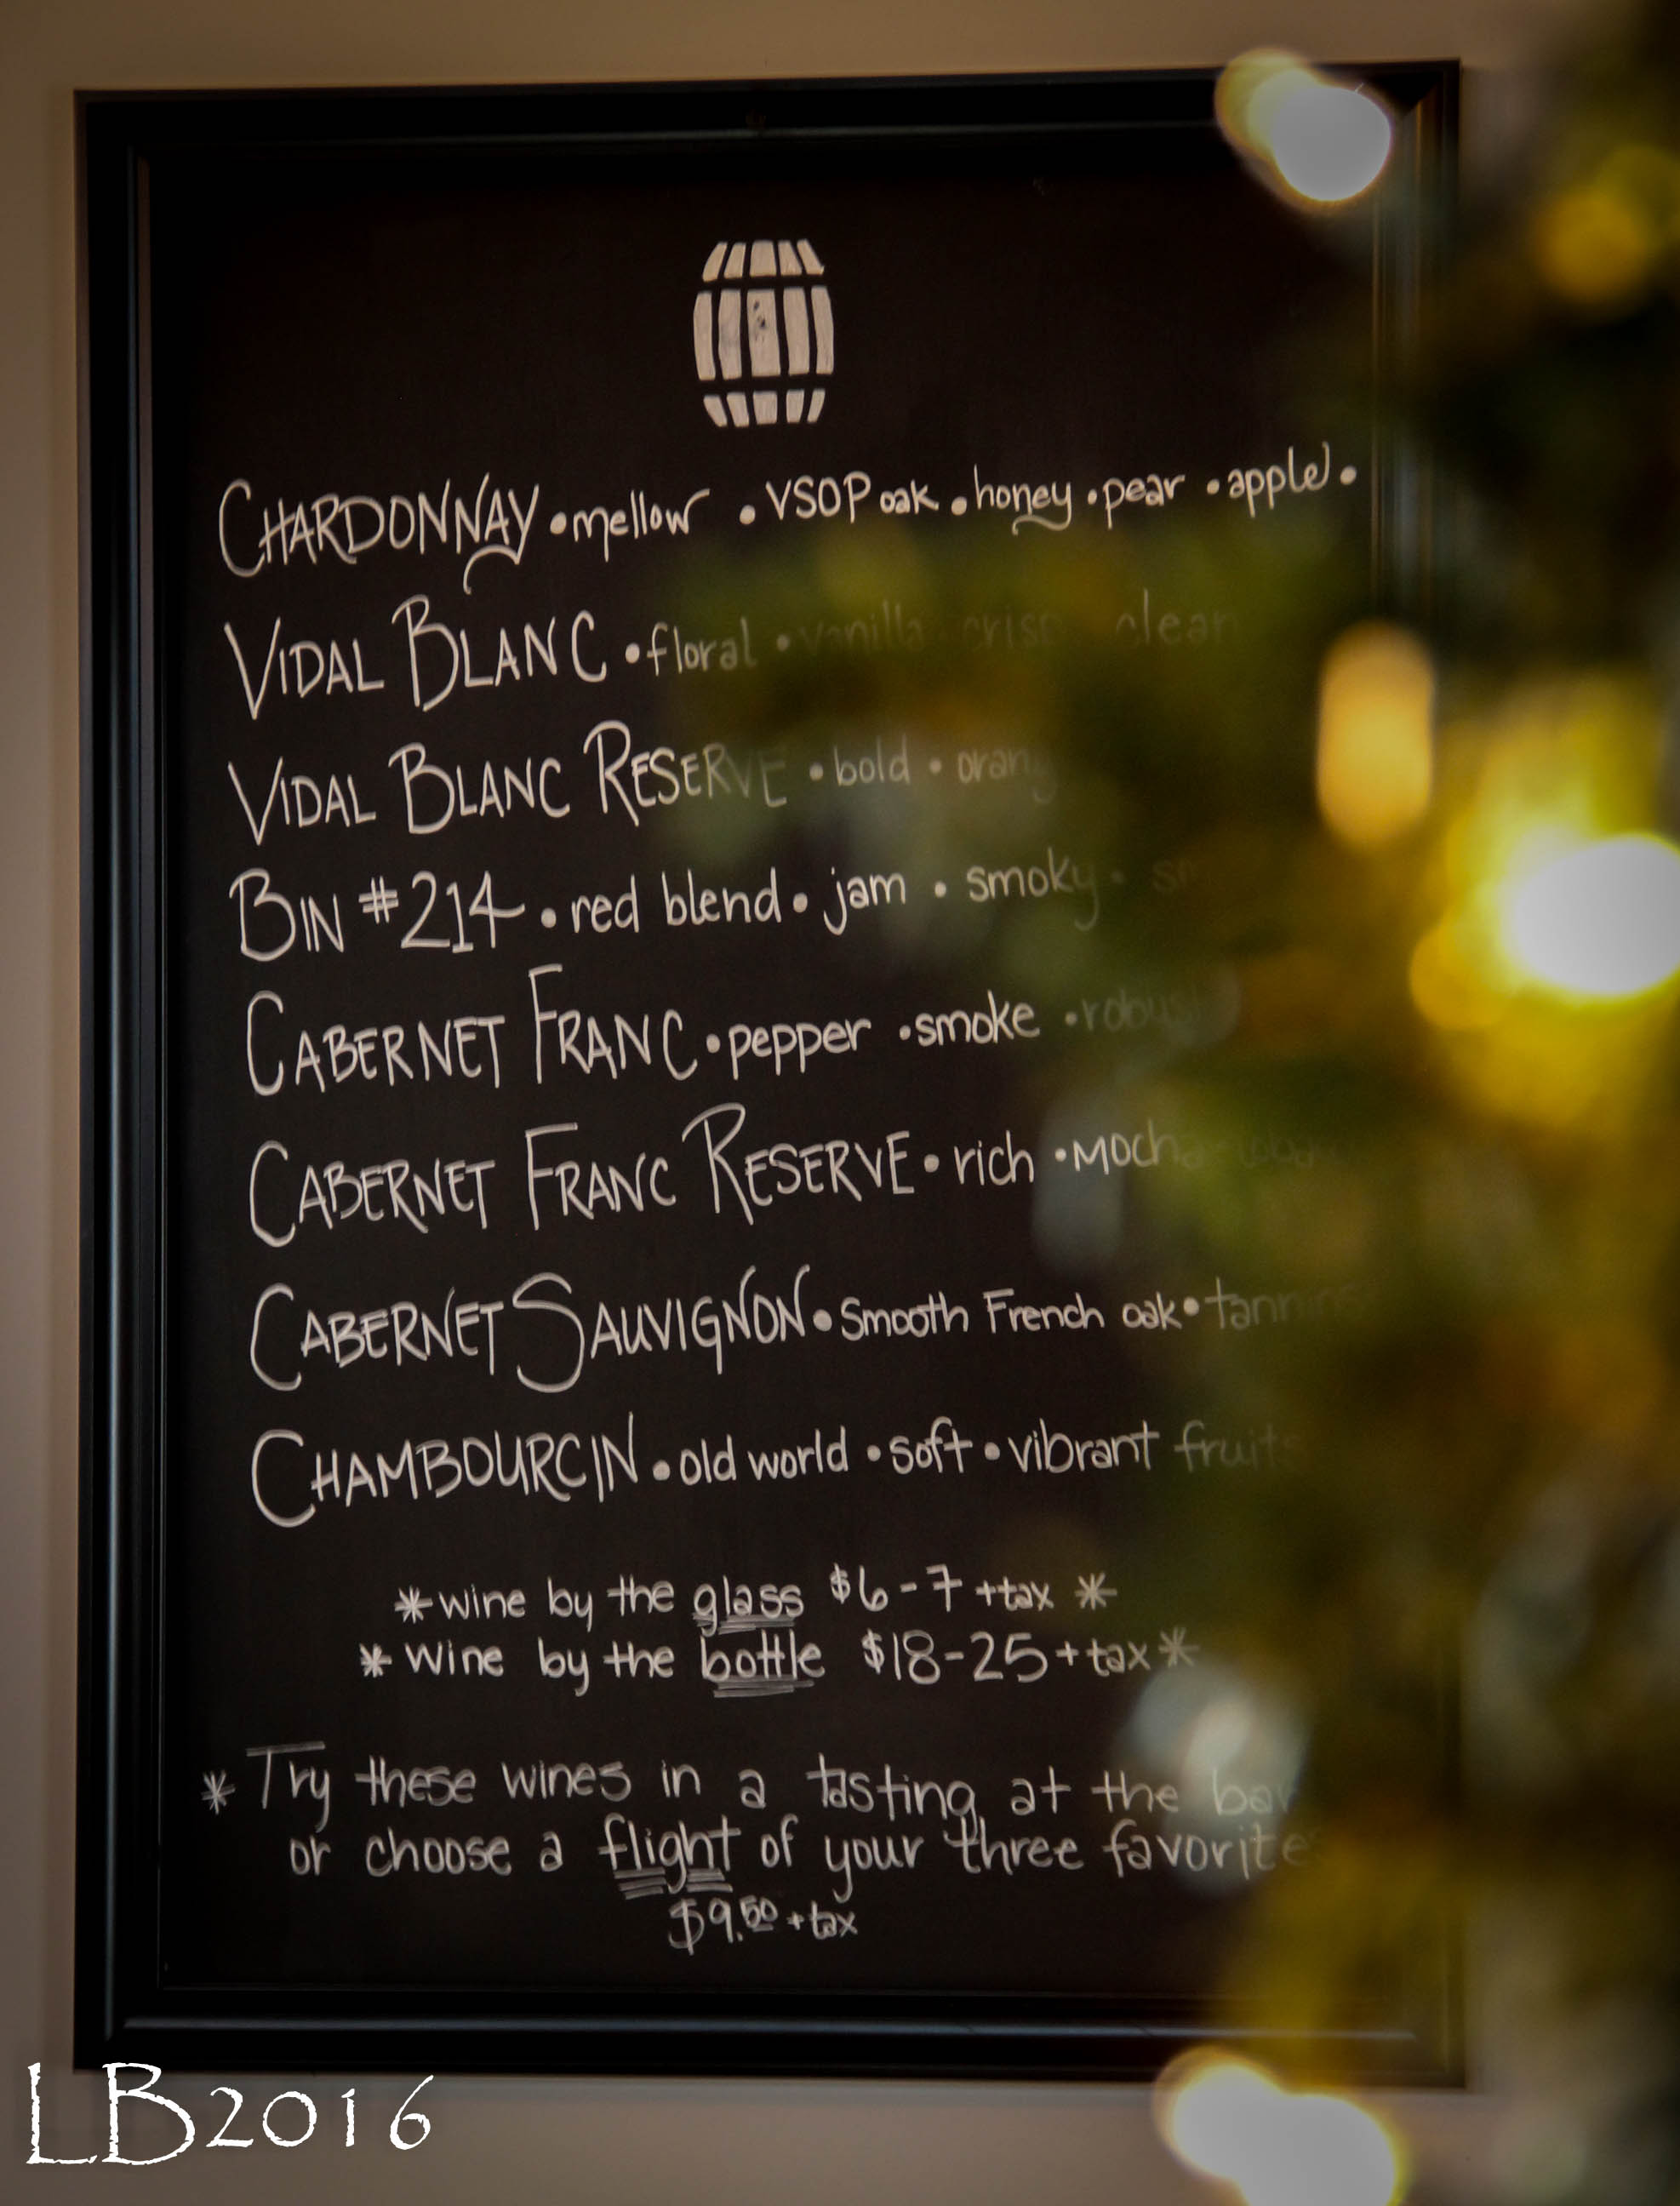 CHARDONNAY • mellow • VSOP oak • honey • pear • apple •
VIDAL BLANC • floral • vanilla crisp clean
VIDAL BLANC RESERVE • bold •
BIN #214 • red blend • jam • smoky •
CABERNET FRANC • pepper • smoke • robust
CABERNET FRANC RESERVE • rich •
CABERNET SAUVIGNON • Smooth French oak • tannins
CHAMBOURCIN • old world • soft • vibrant fruits
* wine by the glass $6-7 +tax *
* Wine by the bottle $18-25 + tax *
* Try these wines in a tasting at the bar
or choose a flight of your three favorites
$9.50 + tax
LB2016